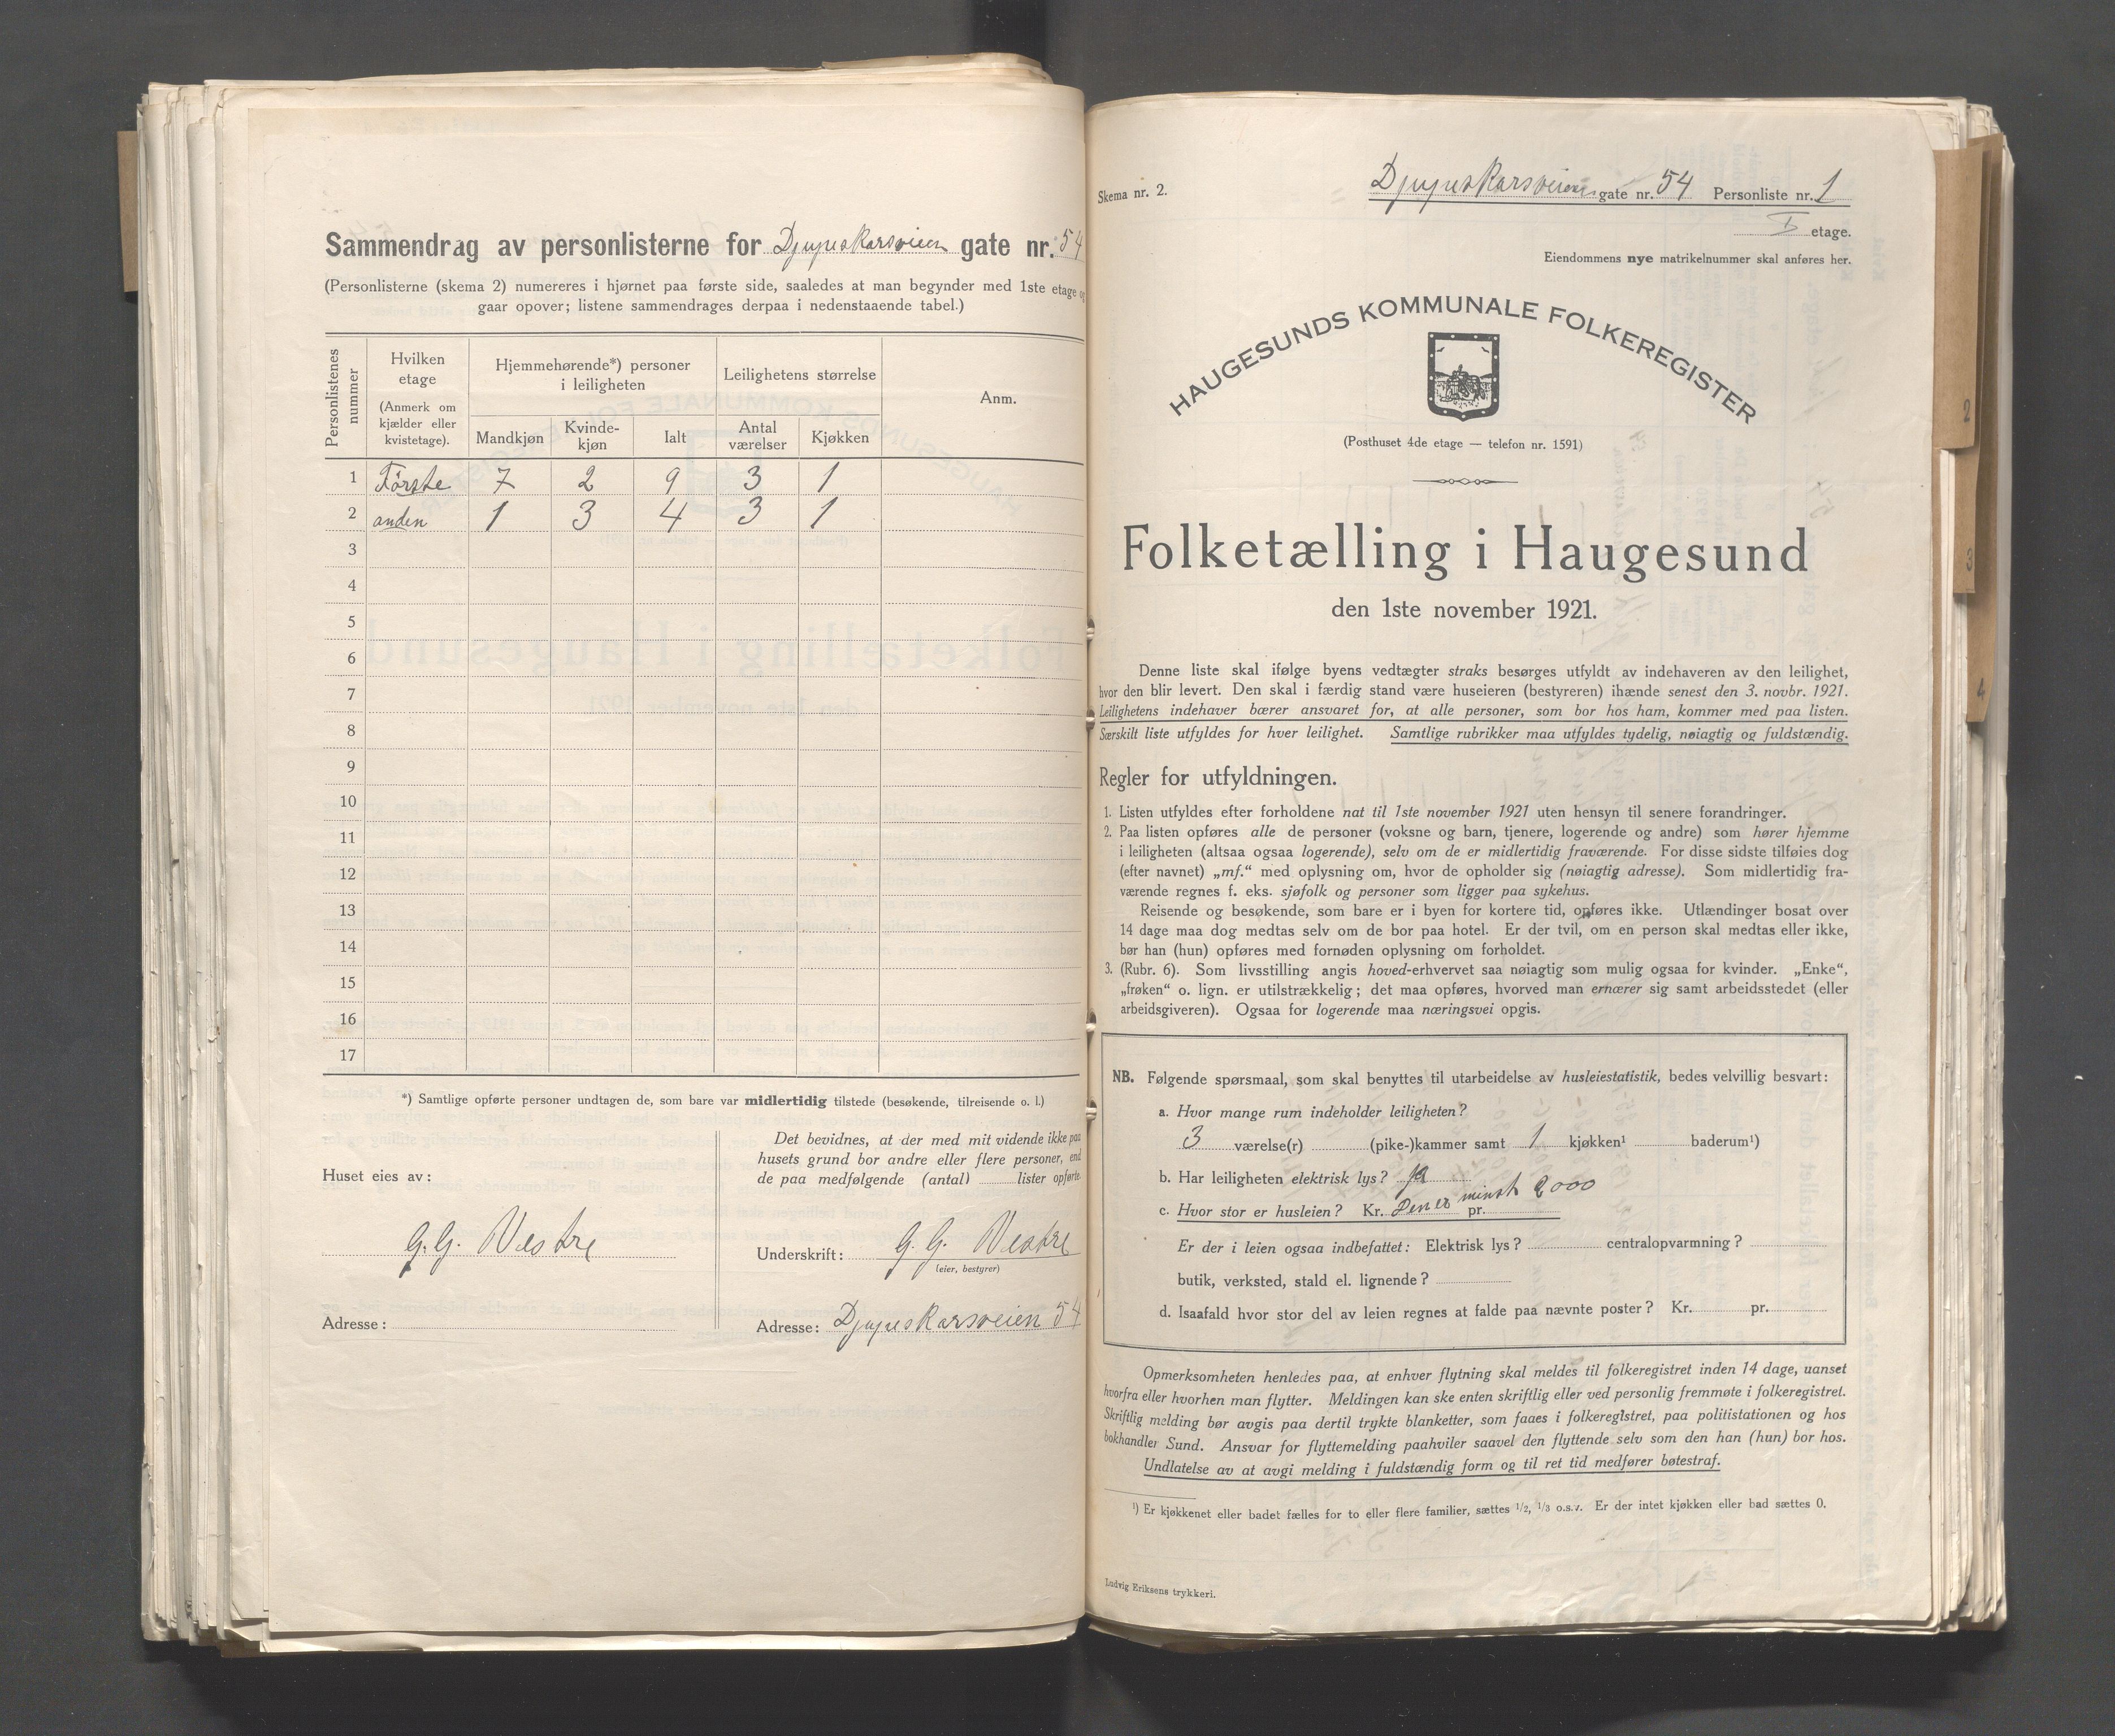 Sammendrag av personlisterne for Djupaskarsveien gate nr. 54
(Personlisterne (skema 2) numereres i hjørnet paa første side, saaledes at man begynder med 1ste etage og
gaar opover; listene sammendrages derpaa i nedenstaaende tabel.)
Personlistenes nummer
Hvilken etage
(Anmerk om kjælder eller kvistetage).
Hjemmehørende*) personer i leiligheten
Leilighetens størrelse
Anm.
Mandkjøn Kvinde-kjøn Ialt Antal værelser Kjøkken
1 Förste 7 2 9 3 1
2 anden 1 3 4 3 1
3
4
5
6
7
8
9
10
11
12
13
14
15
16
17
*) Samtlige opførte personer undtagen de, som bare var midlertidig tilstede (besøkende, tilreisende o. l.)
Huset eies av:
G. G. Vestre
Adresse:
Det bevidnes, at der med mit vidende ikke paa
husets grund bor andre eller flere personer, end
de paa medfølgende (antal) lister opførte.
Underskrift: G. G. Vestre
(eier, bestyrer)
Adresse: Djupaskarsveien 54
Skema nr. 2.
Djupaskarsveien gate nr. 54 Personliste nr. 1
I etage.
Eiendommens nye matrikelnummer skal anføres her.
HAUGESUNDS KOMMUNALE FOLKEREGISTER
(Posthuset 4de etage — telefon nr. 1591)
Folketælling i Haugesund
den 1ste november 1921.
Denne liste skal ifølge byens vedtægter straks besørges utfyldt av indehaveren av den leilighet,
hvor den blir levert. Den skal i færdig stand være huseieren (bestyreren) ihænde senest den 3. novbr. 1921.
Leilighetens indehaver bærer ansvaret for, at alle personer, som bor hos ham, kommer med paa listen.
Særskilt liste utfyldes for hver leilighet. Samtlige rubrikker maa utfyldes tydelig, nøiagtig og fuldstændig.
Regler for utfyldningen.
1. Listen utfyldes efter forholdene nat til 1ste november 1921 uten hensyn til senere forandringer.
2. Paa listen opføres alle de personer (voksne og barn, tjenere, logerende og andre) som hører hjemme
i leiligheten (altsaa ogsaa logerende), selv om de er midlertidig fraværende. For disse sidste tilføies dog
(efter navnet) „mf.“ med oplysning om, hvor de opholder sig (nøiagtig adresse). Som midlertidig fra-
værende regnes f. eks. sjøfolk og personer som ligger paa sykehus.
Reisende og besøkende, som bare er i byen for kortere tid, opføres ikke. Utlændinger bosat over
14 dage maa dog medtas selv om de bor paa hotel. Er der tvil, om en person skal medtas eller ikke,
bør han (hun) opføres med fornøden oplysning om forholdet.
3. (Rubr. 6). Som livsstilling angis hoved-erhvervet saa nøiagtig som mulig ogsaa for kvinder. „Enke“,
„frøken“ o. lign. er utilstrækkelig; det maa opføres, hvorved man ernærer sig samt arbeidsstedet (eller
arbeidsgiveren). Ogsaa for logerende maa næringsvei opgis.
NB. Følgende spørsmaal, som skal benyttes til utarbeidelse av husleiestatistik, bedes velvillig besvart:
a. Hvor mange rum indeholder leiligheten?
3 værelse(r) (pike-)kammer samt 1 kjøkken¹ baderum¹)
b. Har leiligheten elektrisk lys? ja
c. Hvor stor er husleien? Kr. Den er pr. minst 2000
Er der i leien ogsaa indbefattet: Elektrisk lys? centralopvarmning?
butik, verksted, stald el. lignende?
d. Isaafald hvor stor del av leien regnes at falde paa nævnte poster? Kr. pr.
Opmerksomheten henledes paa, at enhver flytning skal meldes til folkeregistret inden 14 dage, uanset
hvorfra eller hvorhen man flytter. Meldingen kan ske enten skriftlig eller ved personlig fremmøte i folkeregistret.
Skriftlig melding bør avgis paa dertil trykte blanketter, som faaes i folkeregistret, paa politistationen og hos
bokhandler Sund. Ansvar for flyttemelding paahviler saavel den flyttende selv som den han (hun) bor hos.
Undlatelse av at avgi melding i fuldstændig form og til ret tid medfører bøtestraf.
¹) Er kjøkkenet eller badet fælles for to eller flere familier, sættes 1/2, 1/3 o.s.v. Er der intet kjøkken eller bad sættes 0.
Ludvig Eriksens trykkeri.
2
3
4